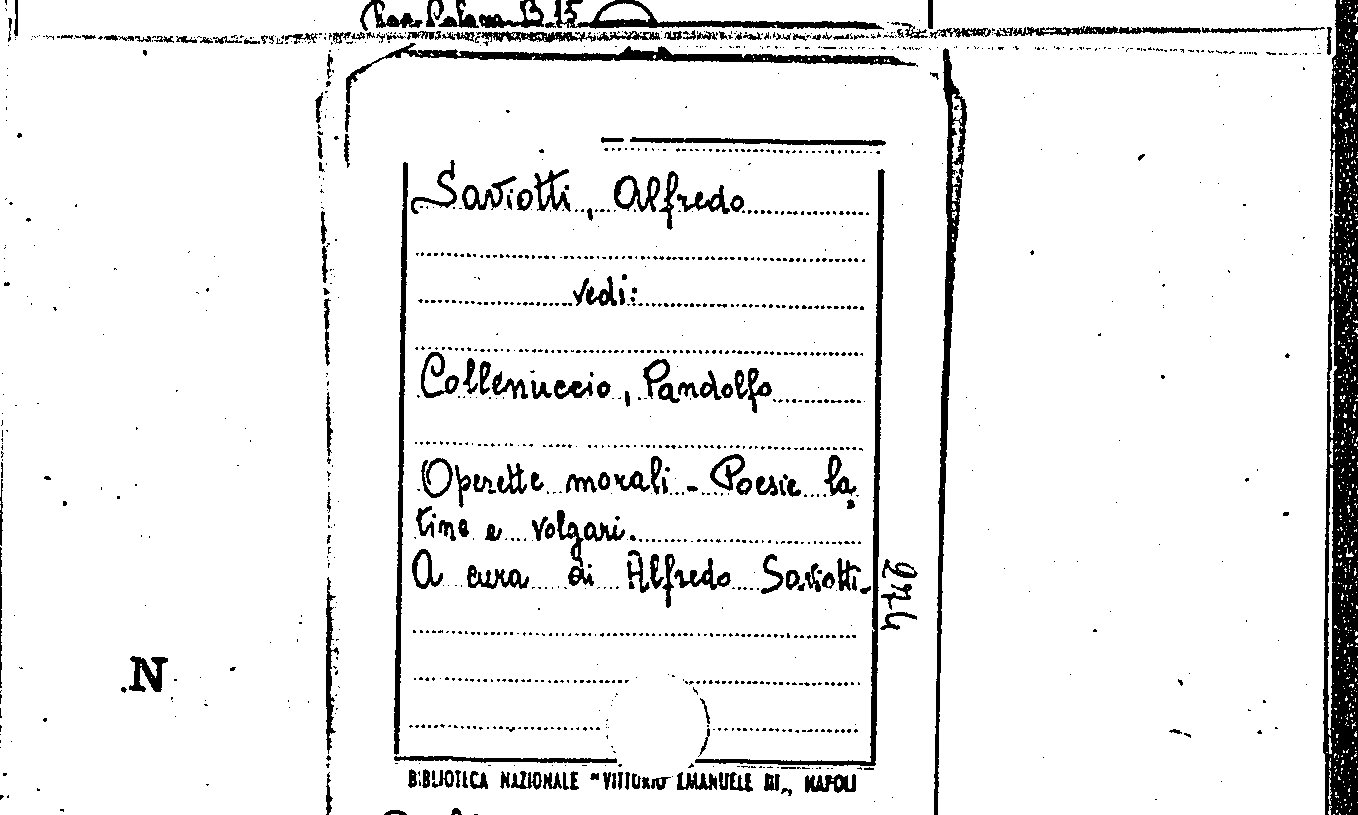 B 15
Saviotti, Alfredo
vedi:
Collenuccio, Pandolfo
Operette morali - Poesie la,
tine e volgari.
A cura di Alfredo Saviotti.
N
BIBLIOTECA NAZIONALE "VITTORIO EMANUELE III„ NAPOLI